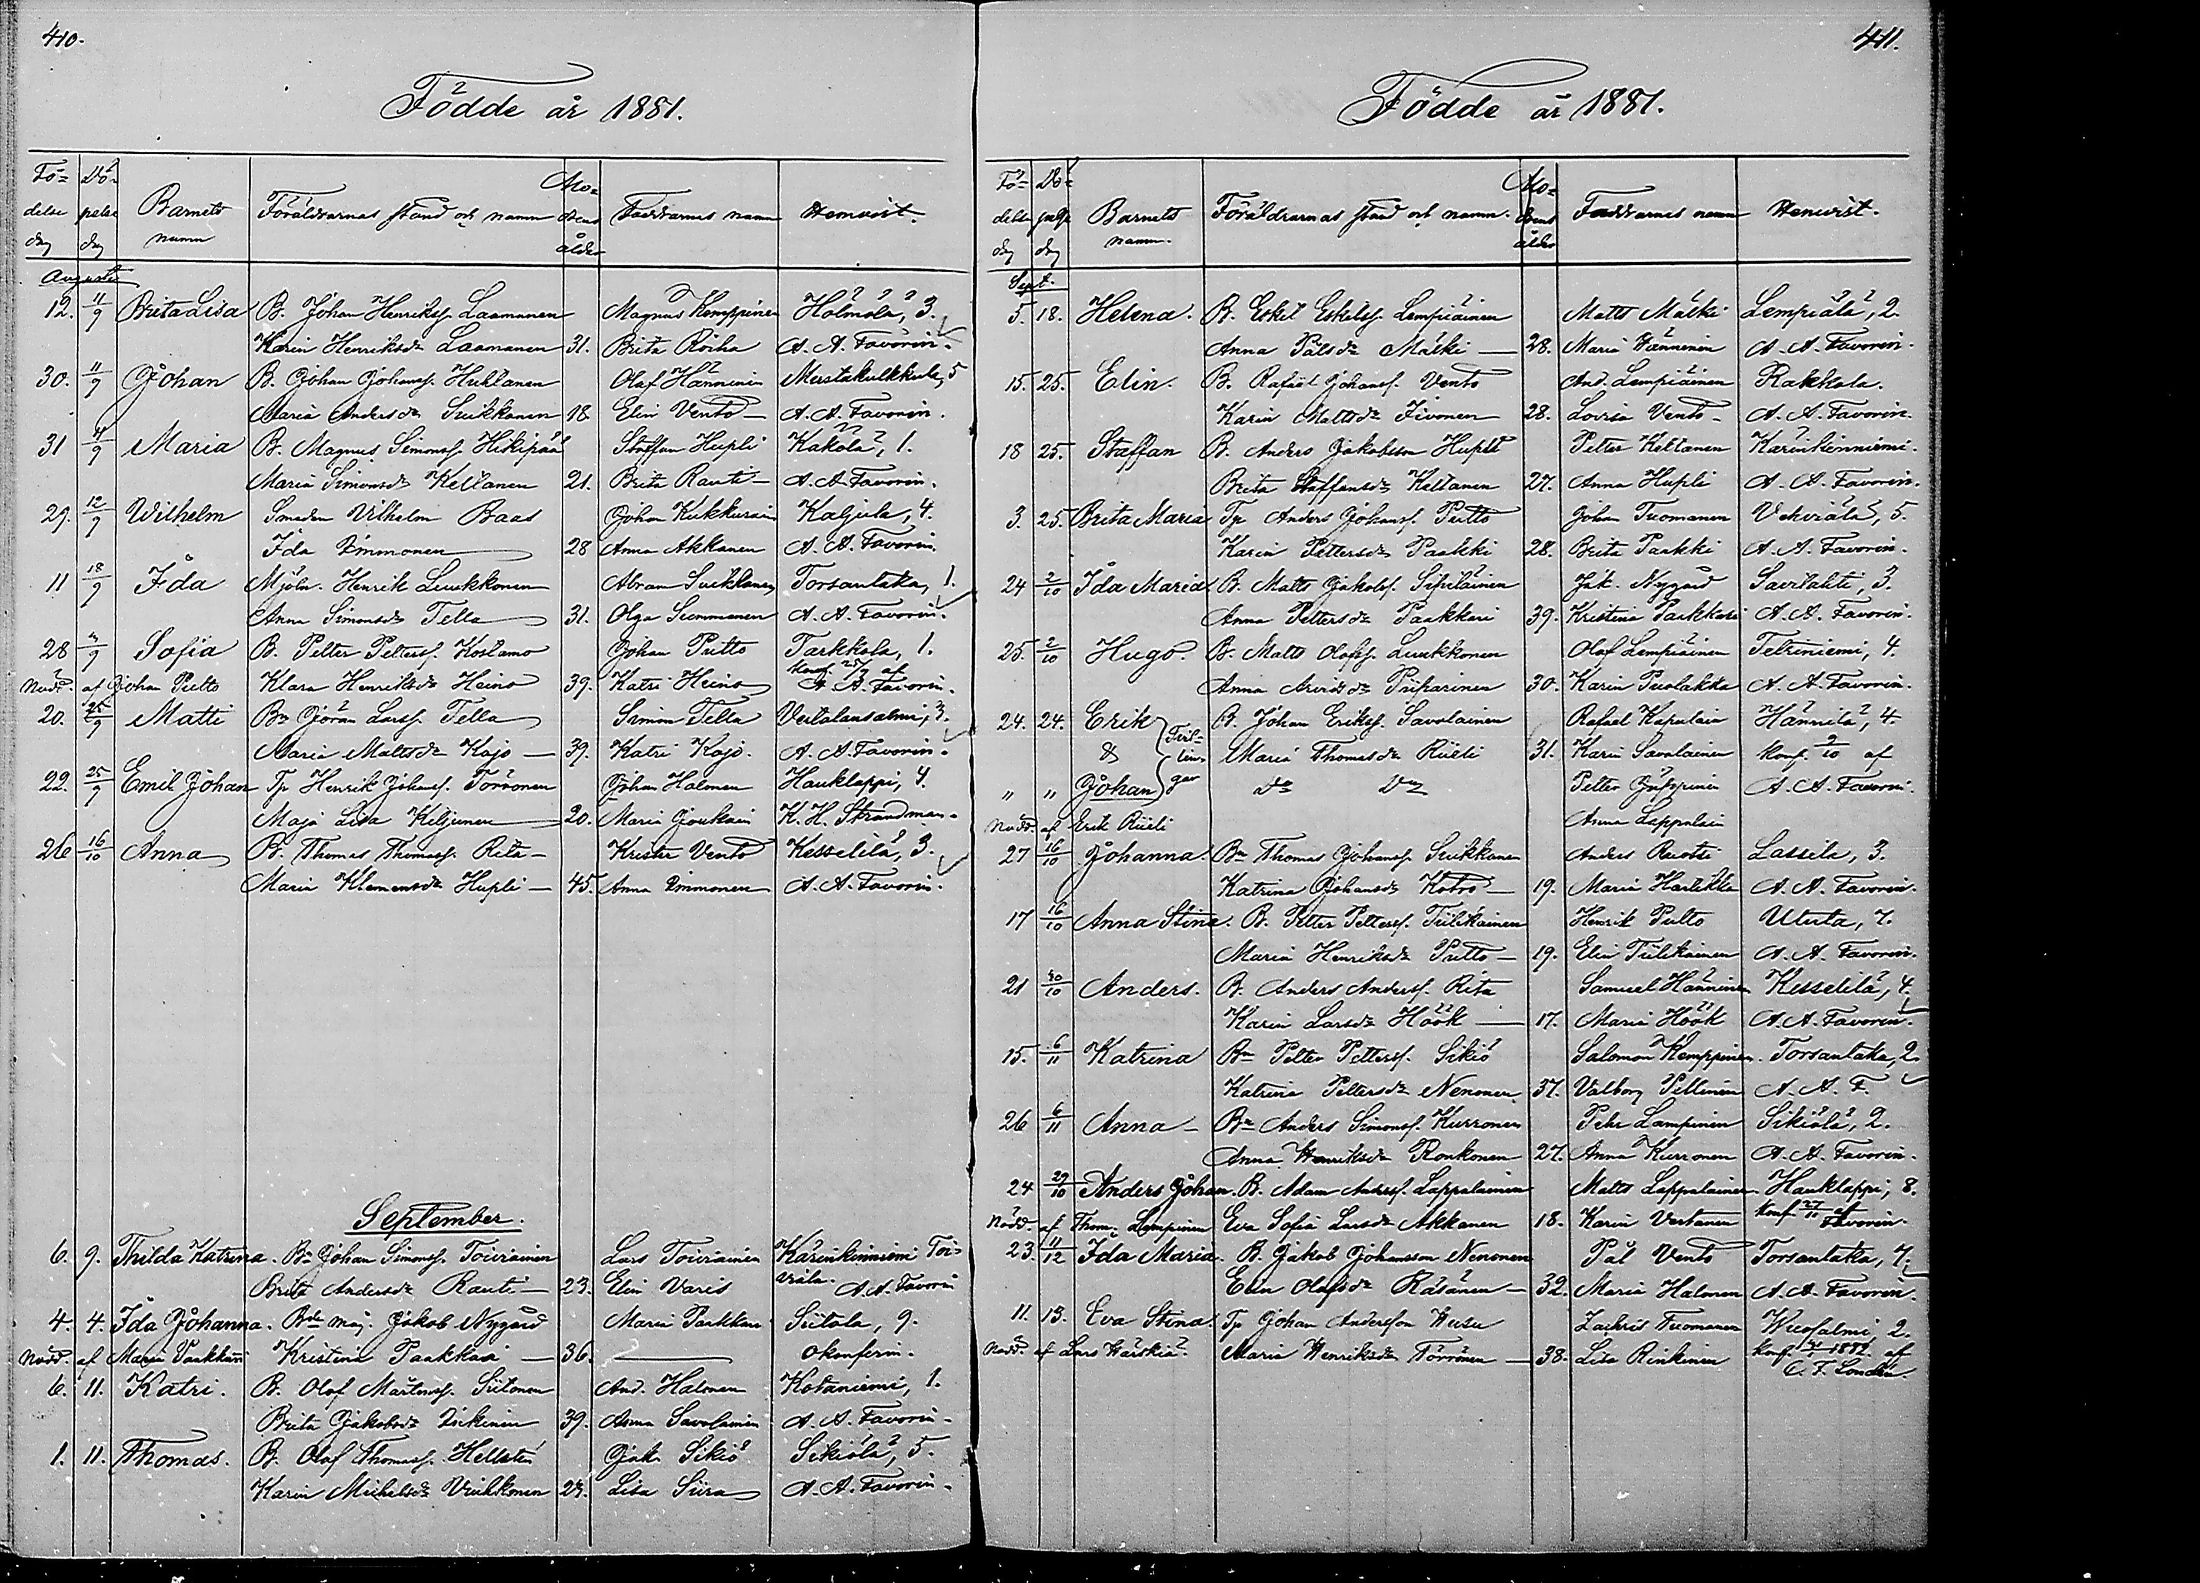 410.
Födde år 1881.
Fö- Dö- Mo-
delse pelse Barnets Föräldrarnas stånd och namn drens Faddrarnes namn Hemvist.
dag dag namn ålder
Augusti
12. 11/9 Brita Lisa B. Johan Henrikss. Laamanen Magnus Kemppinen Holmola, 3.
Karin Henriksdr Laamanen 31. Brita Roiha A. A. Favorin.
30. 11/9 Johan B. Johan Johanss. Huktanen Olaf Hänninen Mustakulkkula, 5
Maria Andersdr Suikkanen 18 Elin Vento A. A. Favorin.
31 4/9 Maria B. Magnus Simonss. Hikipää Staffan Hupli Kakola, 1.
Maria Simonsdr Keltanen 21. Brita Rauti A. A. Favorin.
29. 12/9 Wilhelm Smeden Vilhelm Baas Johan Kukkurain Kaljula, 4.
Ida Immonen 28 Anna Akkanen A. A. Favorin.
11 18/9 Ida Mjöln. Henrik Luukkonen Abram Suikkanen Torsantaka, 1.
Anna Simonsdr Tella 31. Olga Summanen A. A. Favorin.
28 4/9 Sofia B. Petter Petterss. Kostamo Johan Putto Tarkkola, 1.
Nödd. af Johan Putto Klara Henriksdr Heino 39. Katri Heino konf. 25/9 af A. A. Favorin.
20. 25/9 Matti Bn Göran Larss. Tella Simon Tella Vertalansalmi, 3.
Maria Mattsdr Kojo 39. Katri Kojo. A. A. Favorin.
22. 25/9 Emil Johan Tp Henrik Johanss. Torronen Johan Halonen Hauklappi, 4.
Maja Lisa Kiljunen 20. Maria Joukain K. H. Strandman.
26 16/10 Anna B. Thomas Thomass. Rita Krister Vento Kesselilä, 3.
Maria Klemensdr Hupli 45. Anna Immonen A. A. Favorin.
September.
6. 9. Thilda Katrina. Bn Johan Simonss. Toiviainen Lars Toiviainen Kärinkinniemi Toi-
Brita Andersdr Rauti 23. Elin Varis viala. A. A. Favorin
4. 4. Ida Johanna. Bde måg. Jakob Nygård Maria Paakkari Siitola, 9.
Nödd. af Maria Paakkari Kristina Paakkari 36. okonfirm.
6. 11. Katri. B. Olof Mårtenss. Siitonen And. Halonen Kotaniemi, 1.
Brita Jakobsdr Inkinen 39. Anna Savolainen A. A. Favorin
1. 11. Thomas. B. Olof Thomass. Hellstén Jak. Sikiö Sikiölä, 5.
Karin Michelsdr Veikkonen 29. Lisa Siira A. A. Favorin.
411.
Födde år 1881.
Fö- Dö- Mo-
delse pelse Barnets Föräldrarnas stånd och namn. drens Faddrarnes namn Hemvist.
dag dag namn. ålder
Sept.
5. 18. Helena. B. Eskil Eskilss. Lempiäinen Matts Mälki Lempiälä, 2.
Anna Pålsdr Mälki 28. Maria Hänninen A. A. Favorin.
15. 25. Elin. B. Rafael Johanss. Vento And. Lempiäinen Rakkola.
Karin Mattsdr Iivonen 28. Lovisa Vento A. A. Favorin.
18 25. Staffan B. Anders Jakobsson Hupli Petter Keltanen Kärinkinniemi.
Brita Staffansdr Keltanen 27. Anna Hupli A. A. Favorin.
3. 25. Brita Maria Tp Anders Johanss. Putto Johan Tuomanen Vehviälä, 5.
Karin Pettersdr Paakki 28. Brita Paakki A. A. Favorin.
24 2/10 Ida Maria. B. Matts Jakobss. Sipiläinen Jak. Nygård Savilahti, 3.
Anna Pettersdr Paakkari 39. Kristina Paakkari A. A. Favorin.
25. 2/10 Hugo. B. Matts Olofss. Luukkonen Olof Lempiäinen Tetriniemi, 4.
Anna Arvidsdr Piiparinen 30. Karin Puolakka A. A. Favorin.
24. 24. Erik B. Johan Erikss. Savolainen Rafael Kapulain Hännilä, 4.
& Tvil- lin- gar Maria Thomasdr Riieli 31. Karin Savolainen konf. 9/10 af
" " Johan do do Petter Jäppinen A. A. Favorin.
Nödd. af Erik Riieli Anna Lappalain
27 16/10 Johanna. Bn Thomas Johanss. Suikkanen Anders Ruotsi Lassila, 3.
Katrina Johansdr Kotro 19. Maria Hartikka A. A. Favorin.
17 16/10 Anna Stina. B. Petter Petterss. Tiilikainen Henrik Putto Utula, 7.
Maria Henriksdr Putto 19. Elin Tiilikainen A. A. Favorin.
21 30/10 Anders. B. Anders Anderss. Rita Samuel Hänninen Kesselilä, 4.
Karin Larsdr Höök 17. Maria Höök A. A. Favorin.
15. 6/11 Katrina Bn Petter Petterss. Sikiö Salomon Kemppinen. Torsantaka, 2.
Katrina Pettersdr Nenonen 37. Valborg Pellinen A. A. F.
26 6/11 Anna Bn Anders Simonss. Kurronen Pehr Lampinen Sikiölä, 2.
Anna Henriksdr Ronkonen 27. Anna Kurronen A. A. Favorin.
24 29/10 Anders Johan. B. Adam Anderss. Lappalainen Matts Lappalainen. Hauklappi, 8.
Nödd. af Thom. Lempinen Eva Sofia Larsdr Akkanen 18. Karin Vertanen konf. 27/11 af Favorin.
23. 11/12 Ida Maria. B. Jakob Johansson Nenonen Pål Vento Torsantaka, 7.
Elin Olofsdr Räsänen 32. Maria Halonen A. A. Favorin.
11. 13. Eva Stina. Tp Johan Andersson Uusu Zachris Tuomanen Wuosalmi, 2.
Nödd. af Lars Härskiä. Maria Henriksdr Törrönen 38. Lisa Rinkinen konf. 1882 af
C. F. Londén.